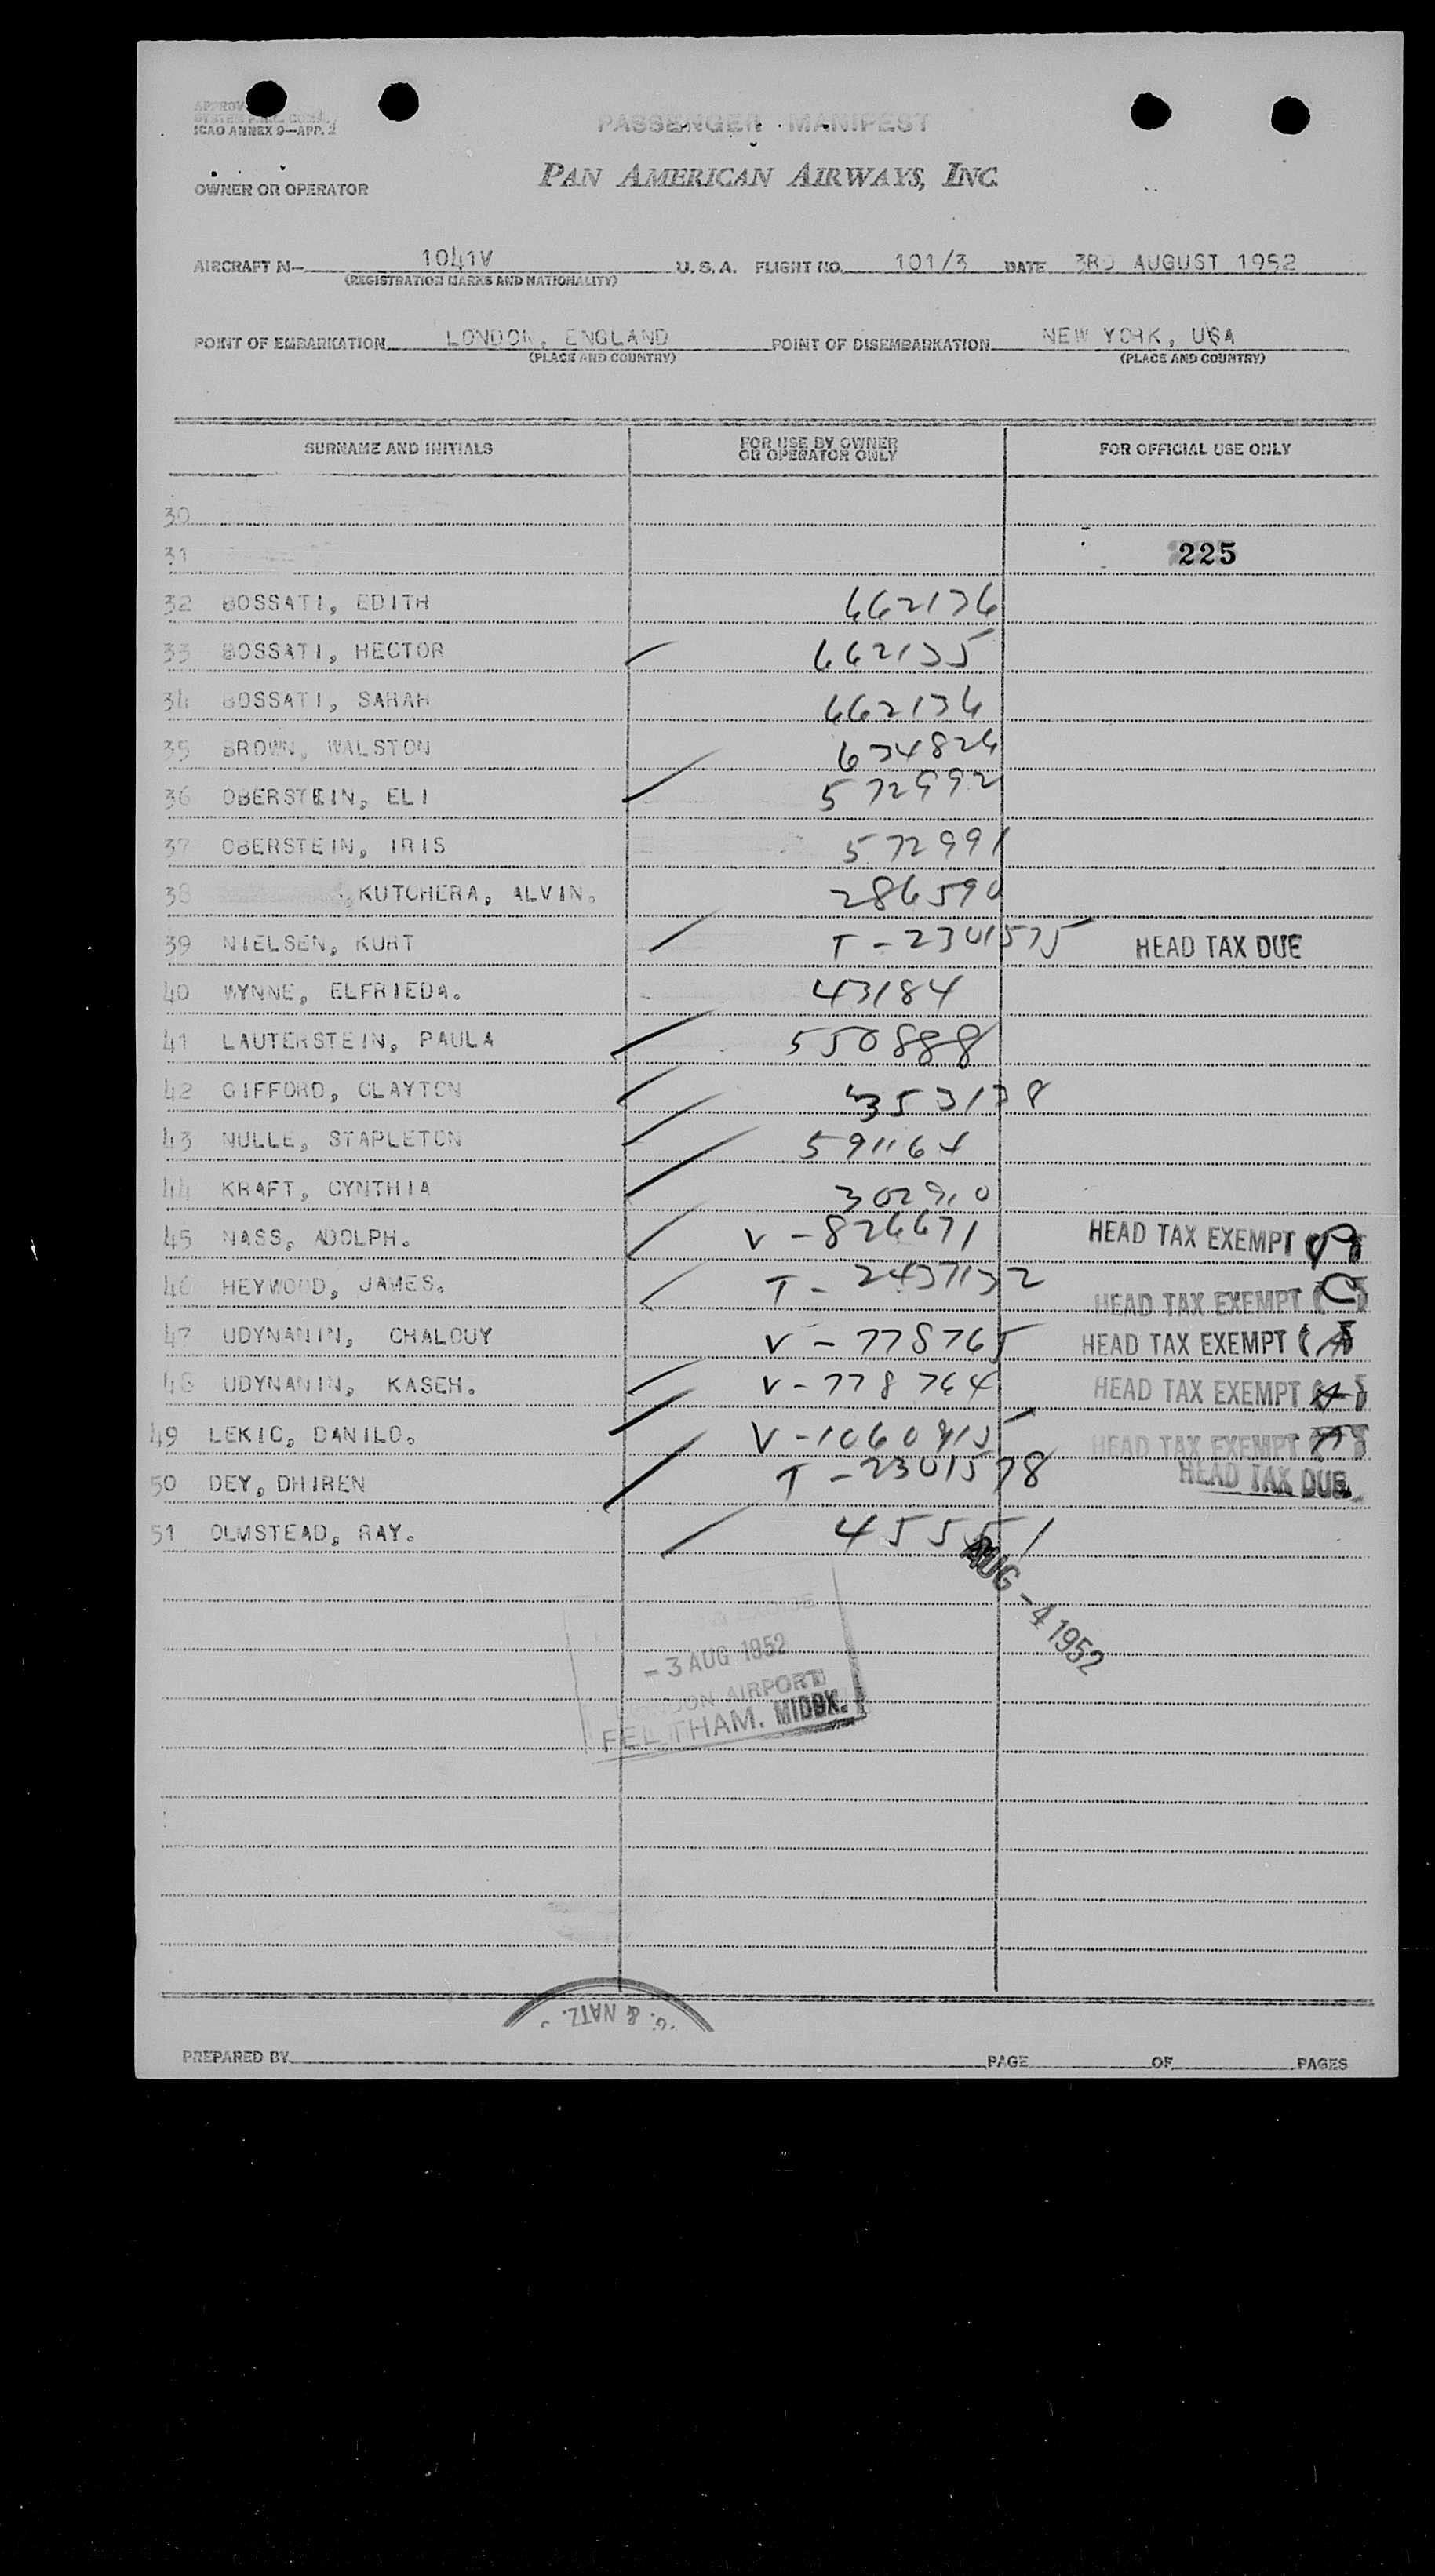 APPROV
SYSTEM P.A.A. COMP.
ICAO ANNEX 9—APP. 2
PASSENGER MANIFEST
PAN AMERICAN AIRWAYS, INC.
OWNER OR OPERATOR
AIRCRAFT N— 1041V U. S. A. FLIGHT NO. 101/3 DATE 3RD AUGUST 1952
(REGISTRATION MARKS AND NATIONALITY)
POINT OF EMBARKATION LONDON, ENGLAND POINT OF DISEMBARKATION NEW YORK, USA
(PLACE AND COUNTRY) (PLACE AND COUNTRY)
SURNAME AND INITIALS FOR USE BY OWNER OR OPERATOR ONLY FOR OFFICIAL USE ONLY
30
31 225
32 BOSSATI, EDITH 662136
33 BOSSATI, HECTOR 662135
34 BOSSATI, SARAH 662136
35 BROWN, WALSTON 634826
36 OBERSTEIN, ELI 572992
37 OBERSTEIN, IRIS 572991
38 KUTCHERA, ALVIN. 286590
39 NIELSEN, KURT T-2301575 HEAD TAX DUE
40 WYNNE, ELFRIEDA. 43184
41 LAUTERSTEIN, PAULA 550888
42 GIFFORD, CLAYTON 353138
43 NULLE, STAPLETON 591164
44 KRAFT, CYNTHIA 302910
45 NASS, ADOLPH. V-826671 HEAD TAX EXEMPT
46 HEYWOOD, JAMES. T-2437132 HEAD TAX EXEMPT
47 UDYNANIN, CHALOUY V-778765 HEAD TAX EXEMPT
48 UDYNANIN, KASEH. V-778764 HEAD TAX EXEMPT
49 LEKIC, DANILO. V-1060915 HEAD TAX EXEMPT
50 DEY, DHIREN T-2301578 HEAD TAX DUE
51 OLMSTEAD, RAY. 455551
AUG -4 1952
-3 AUG 1952
LONDON AIRPORT
FELTHAM. MIDDX.
G. & NATZ.
PREPARED BY PAGE OF PAGES